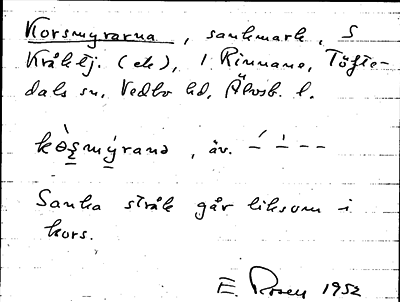 Korsmyrarna, sankmark, S
Kråktj. (ek), 1 Rinnane, Töfte-
dals sn, Vedbo hd, Älvsb. l.
, äv.
Sanka stråk går liksom i
kors.
E. Rosen 1952